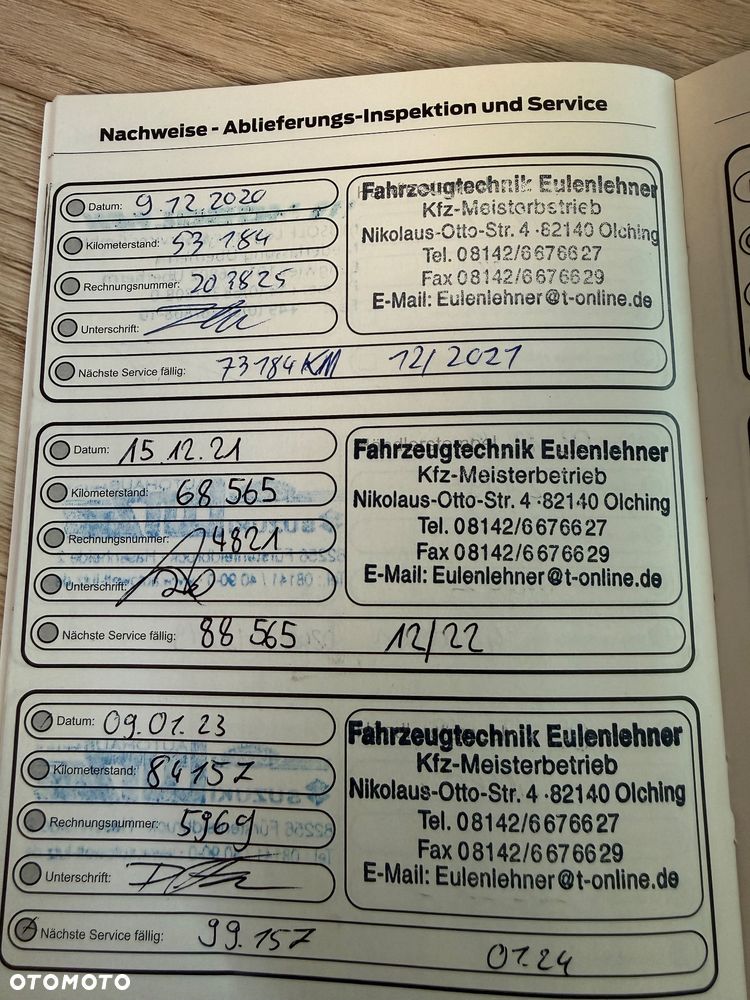 Nachweise - Ablieferungs-Inspektion und Service
Datum: 9 12.2020
Kilometerstand: 53 184
Rechnungsnummer: 203825
Unterschrift:
Nächste Service fällig: 73184 KM 12/2021
Fahrzeugtechnik Eulenlehner
Kfz-Meisterbetrieb
Nikolaus-Otto-Str. 4 ·82140 Olching
Tel. 08142/6676627
Fax 08142/6676629
E-Mail: Eulenlehner@t-online.de
Datum: 15.12.21
Kilometerstand: 68 565
Rechnungsnummer: 4821
Unterschrift:
Nächste Service fällig: 88 565 12/22
Fahrzeugtechnik Eulenlehner
Kfz-Meisterbetrieb
Nikolaus-Otto-Str. 4 ·82140 Olching
Tel. 08142/6676627
Fax 08142/6676629
E-Mail: Eulenlehner@t-online.de
Datum: 09.01.23
Kilometerstand: 84157
Rechnungsnummer: 5969
Unterschrift:
Nächste Service fällig: 99.157 01.24
Fahrzeugtechnik Eulenlehner
Kfz-Meisterbetrieb
Nikolaus-Otto-Str. 4 ·82140 Olching
Tel. 08142/6676627
Fax 08142/6676629
E-Mail: Eulenlehner@t-online.de
OTOMOTO